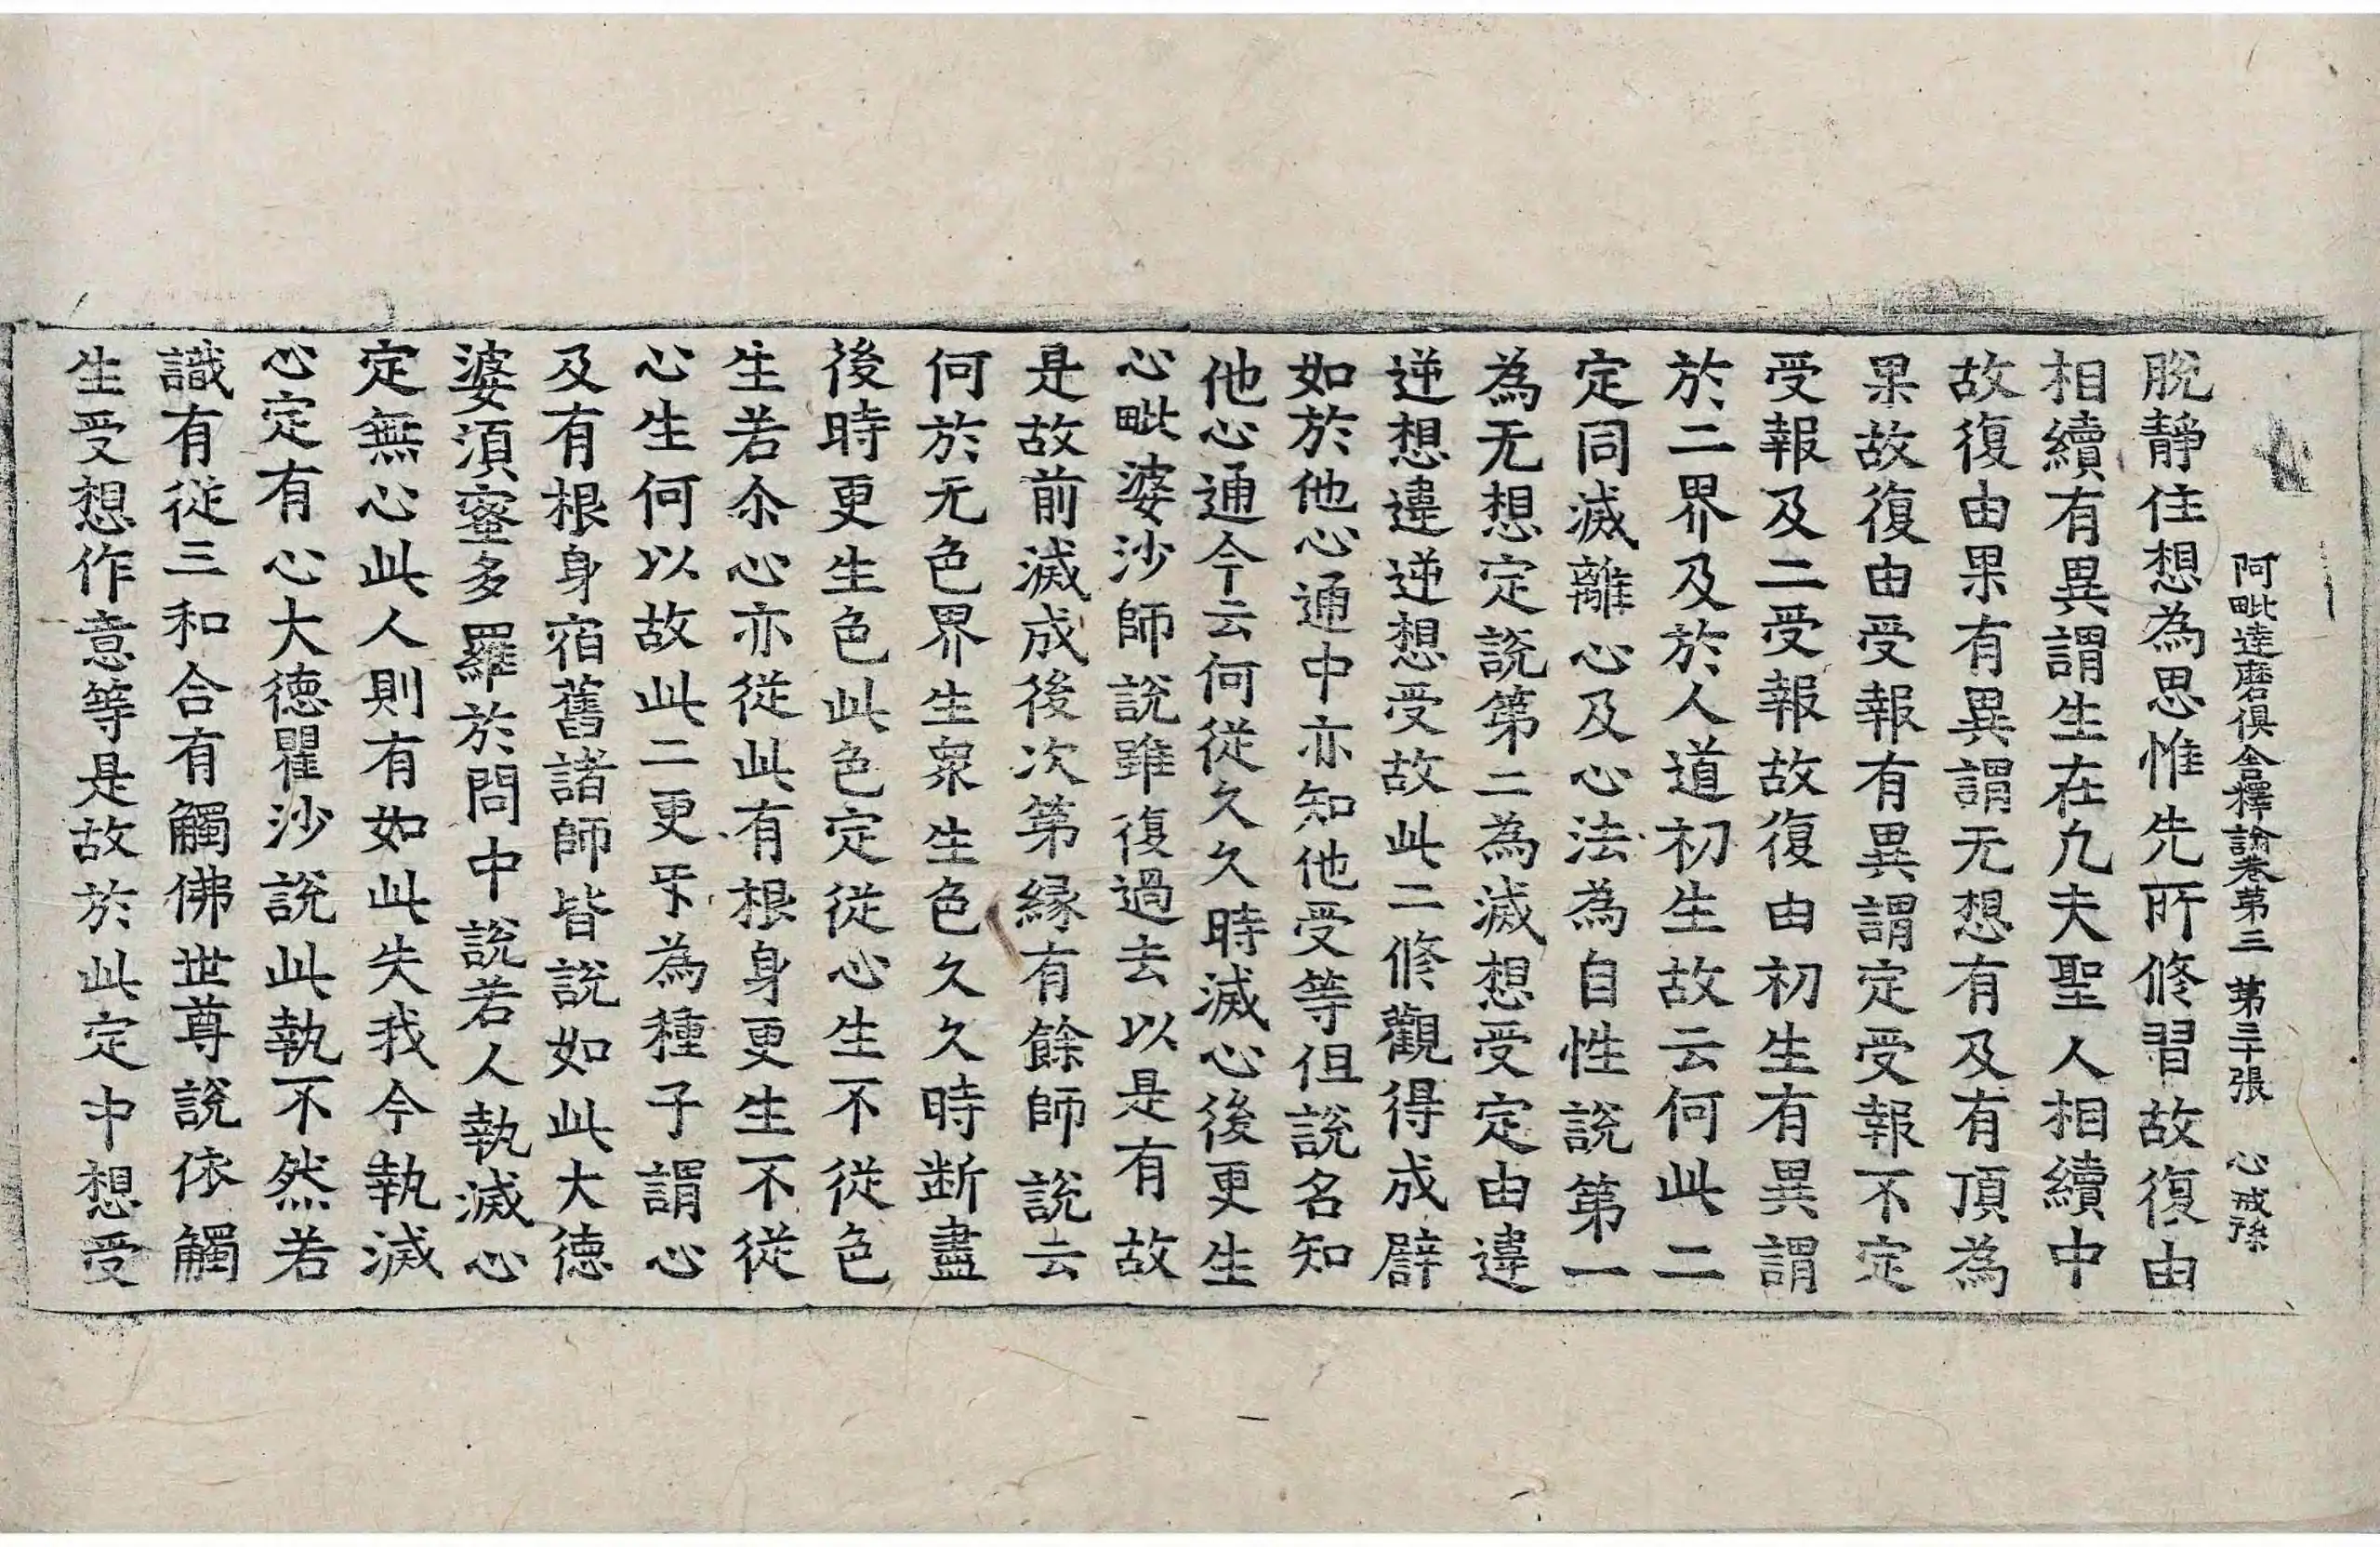 阿毗達磨俱舍釋論卷第三 第二十張 心戒孫
脫靜住想為思惟先所修習故復由
相續有異謂生在九夫聖人相續中
故復由果有異謂无想有及有頂為
果故復由受報有異謂定受報不定
受報及二受報故復由初生有異謂
於二界及於人道初生故云何此二
定同滅離心及心法為自性說第一
為无想定說第二為滅想受定由違
逆想違逆想受故此二修觀得成辟
如於他心通中亦知他受等但說名知
他心通今云何從久久時滅心後更生
心毗婆沙師說雖復過去以是有故
是故前滅成後次第緣有餘師說云
何於无色界生衆生色久久時断盡
後時更生色此色定從心生不從色
生若尒心亦從此有根身更生不從
心生何以故此二更㸦為種子謂心
及有根身宿舊諸師皆說如此大德
婆須蜜多羅於問中說若人執滅心
定無心此人則有如此失我今執滅
心定有心大德瞿沙說此執不然若
識有從三和合有觸佛世尊說依觸
生受想作意等是故於此定中想受